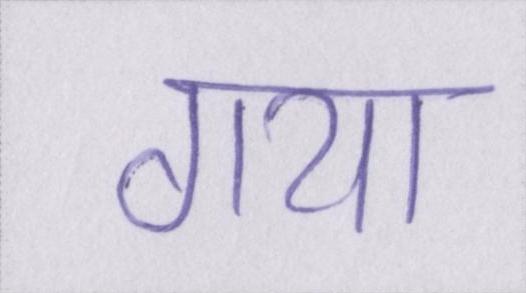 गया